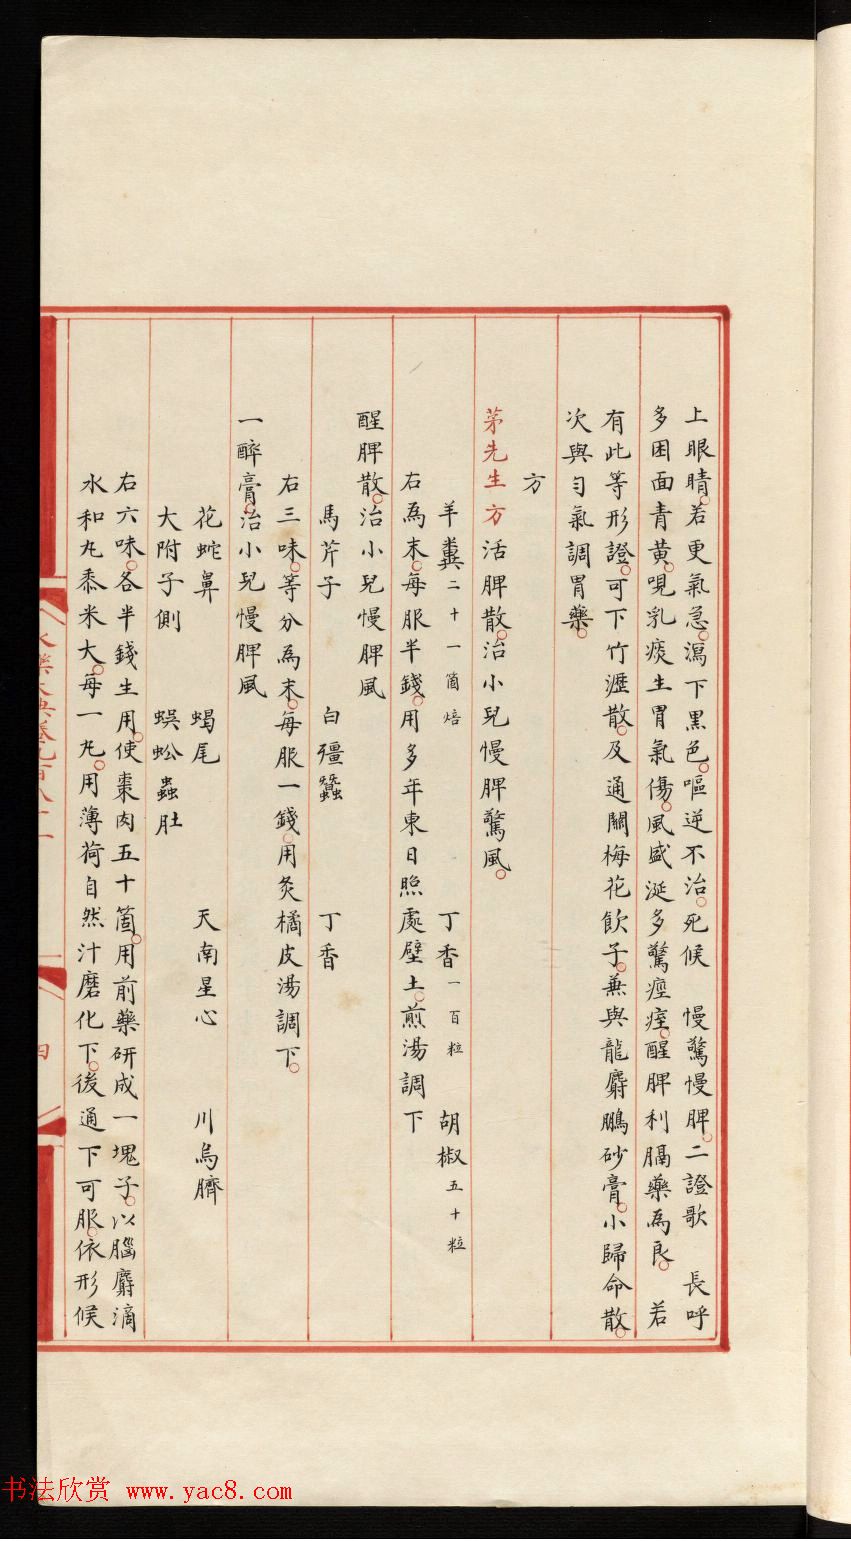 上眼睛若更氣急瀉下黑色嘔逆不治死候　慢驚慢脾二證歌　長呼
多困面青黃哯乳痰生胃氣傷風盛涎多驚瘂瘂醒脾利膈藥為良　若
有此等形證可下竹瀝散及通關梅花飲子兼與龍麝鵬砂膏小歸命散
次與勻氣調胃藥
方
茅先生方活脾散治小兒慢脾驚風
羊糞二十一箇焙　丁香一百粒　胡椒五十粒
右為末每服半錢用多年東日照處壁土煎湯調下
醒脾散治小兒慢脾風
馬芹子　白殭蠶　丁香
右三味等分為末每服一錢用炙橘皮湯調下
一醉膏治小兒慢脾風
花蛇鼻　蝎尾　天南星心　川烏臍
大附子側　蜈蚣蟲肚
右六味各半錢生用使棗肉五十箇用前藥研成一塊子以腦麝滴
水和丸黍米大每一丸用薄荷自然汁磨化下後通下可服依形候
永樂大典卷九百八十一
四
书法欣赏 www.yac8.com